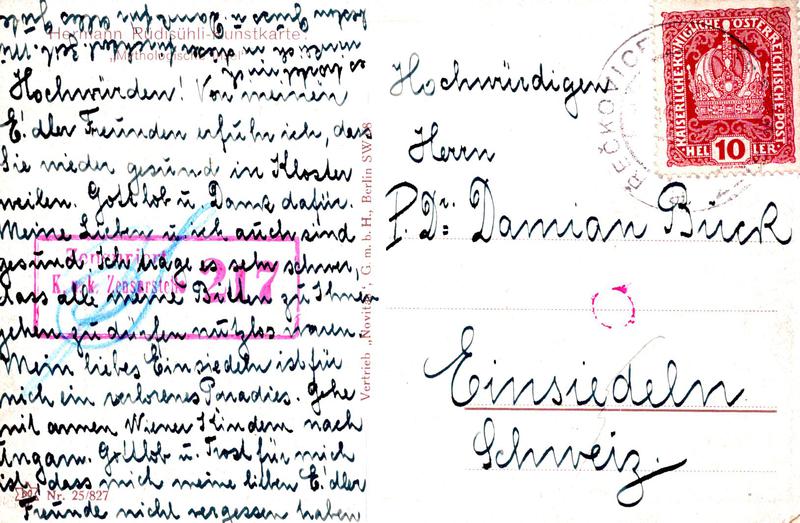 Hermann Rüdisühli-Kunstkarte.
„Mythologische
Hochwürden! Von meinen
E'dler Freunden erfuhr ich, dass
Sie wieder gesund in Kloster
weilen. Gottlob u Dank dafür.
Meine Lieben u ich auch sind
gesund. Ich trage es sehr schwer,
dass alle meine Bitten zu Ihnen
gehen zu dürfen nutzlos waren.
Mein liebes Einsiedeln ist für
mich ein verlorenes Paradies. Gehe
mit armen Wiener Kindern nach
Ungarn. Gottlob u. Trost für mich
ist, dass mich meine lieben E'dler
Freunde nicht vergessen haben
Nr. 25/827
besten Gruss u. Dank für alles Gute
Zensuriert
K. u. k. Zensurstelle 217
Vertrieb „Novitas", G. m. b. H., Berlin SW 68
KAISERLICHE KÖNIGLICHE ÖSTERREICHISCHE POST
HEL 10 LER
Hochwürdigen
Herrn
P. Dr: Damian Buck
Einsiedeln
Schweiz.